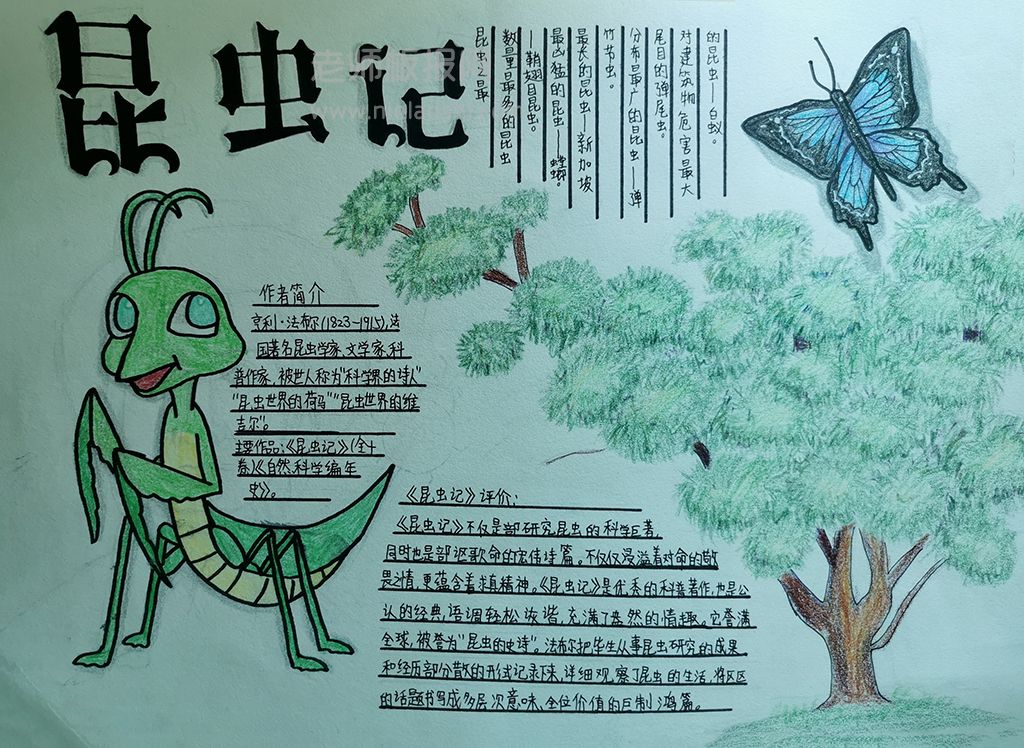 昆虫记
昆虫之最
数量最多的昆虫
—鞘翅目昆虫。
最凶猛的昆虫—螳螂。
最长的昆虫—新加坡
竹节虫。
分布最广的昆虫—弹
尾目的弹尾虫。
对建筑物危害最大
的昆虫—白蚁。
作者简介
亨利·法布尔(1823-1915),法
国著名昆虫学家、文学家、科
普作家,被世人称为“科学界的诗人”
“昆虫世界的荷马”“昆虫世界的维
吉尔”。
主要作品:《昆虫记》(全十
卷)《自然科学编年
史》。
《昆虫记》评价:
《昆虫记》不仅是部研究昆虫的科学巨著,
同时也是部讴歌命的宏伟诗篇。不仅仅漫溢着对命的敬
畏之情,更蕴含着求真精神。《昆虫记》是优秀的科普著作,也是公
认的经典,语调轻松诙谐,充满了盎然的情趣。它誉满
全球,被誉为“昆虫的史诗”。法布尔把毕生从事昆虫研究的成果
和经历部分散的形式记录下来,详细观察了昆虫的生活,将区区
的话题书写成多层次意味、全位价值的巨制鸿篇。